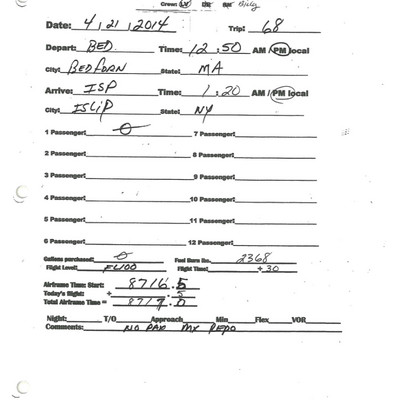 Crew: LV BK BN Billy
Date: 4, 21, 2014 Trip: 68
Depart: BED Time: 12:50 AM / PM local
City: BEDFORD State: MA
Arrive: ISP Time: 1:20 AM / PM local
City: ISLIP State: NY
1 Passenger: 0 7 Passenger:
2 Passenger: 8 Passenger:
3 Passenger: 9 Passenger:
4 Passenger: 10 Passenger:
5 Passenger: 11 Passenger:
6 Passenger: 12 Passenger:
Gallons purchased: 0 Fuel Burn lbs. 2368
Flight Level: FL100 Flight Time: +30
Airframe Time: Start: 8716.5
Today's flight: + .5
Total Airframe Time = 8717.0
Night: T/O Approach Min Flex VOR
Comments: NO PAX MX REPO